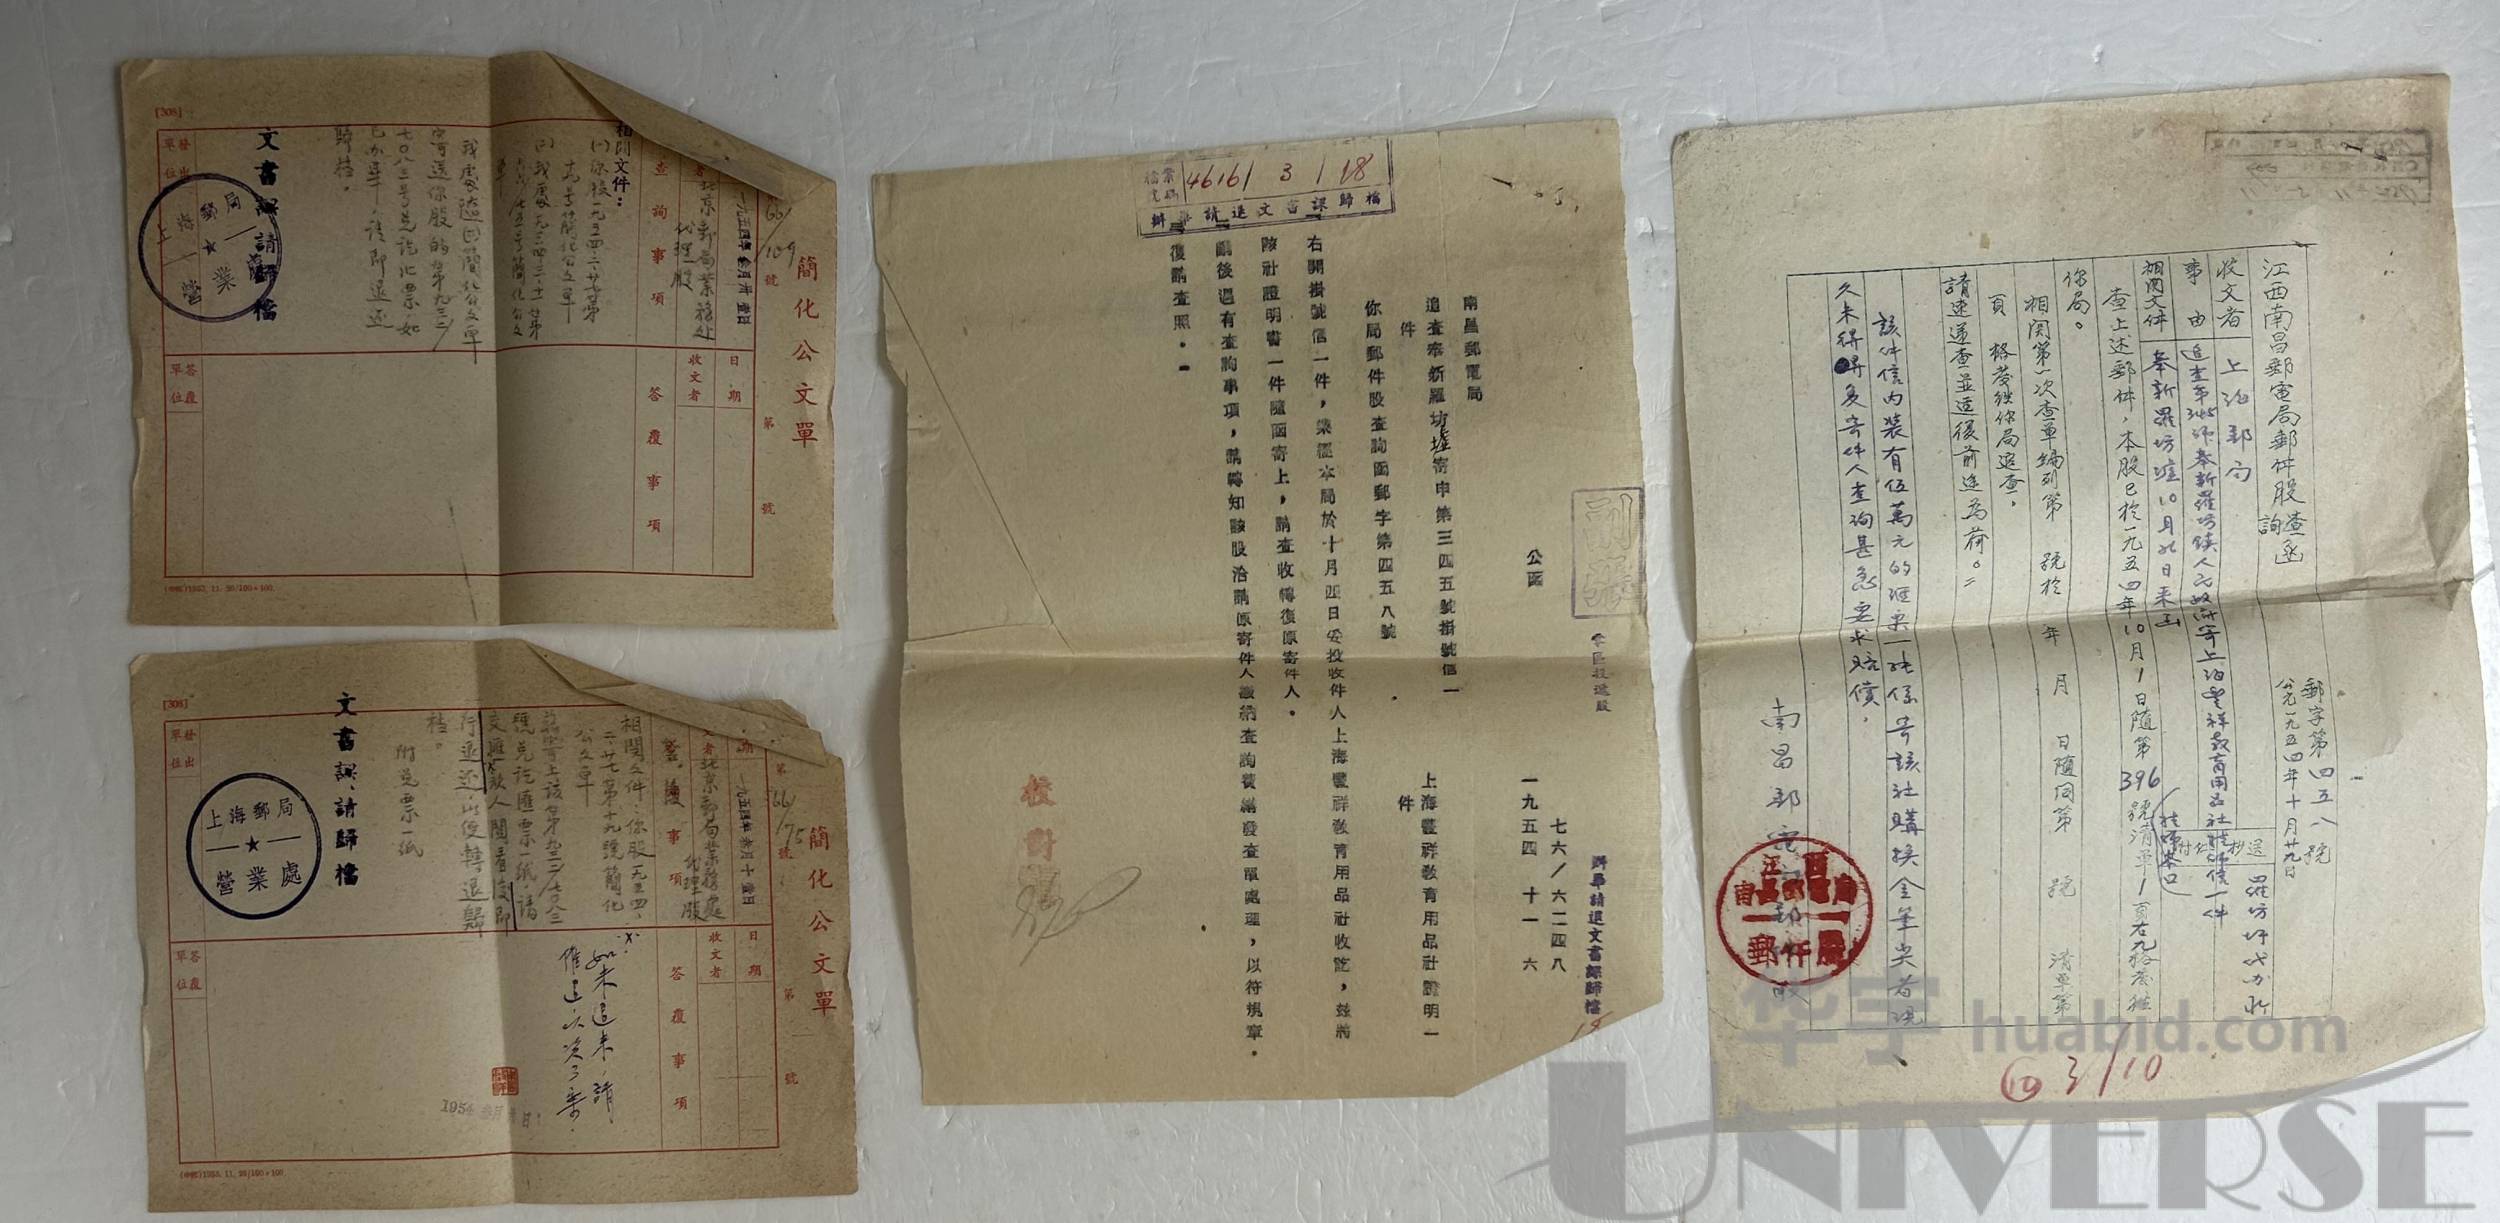 [308]
簡化公文單
66/109
號
一九五四年叁月卅壹日
北京郵局業務處
代理股
查詢事項
相關文件：
㈠你股一九五四、二、廿七第
號簡化公文單
寄還你股的第九三二/
七〇八三號兑訖汇票，如
已办畢，請即退还
歸档。
文書課請歸檔
上海郵局
★
營業處
發出單位
日期
收文者
答覆事項
答覆單位
第 號
1953. 11.
[308]
簡化公文單
第66/175號
一九五四年叁月十壹日
北京郵局業務處
代理股
相關文件：你股一九五四、
二、廿七第十九號簡化
公文單
號兑訖匯票一紙，請
交匯款人閱看後即
行退还，以便轉退歸
档。
附兑票一紙
文書課、請歸檔
上海郵局
★
營業處
發出單位
日期
收文者
答覆事項
答覆單位
第 號
如未退来，請
1954
檔案號碼
46161 3 18
辦畢請送文書課歸檔
副張
本區投遞股
辦畢請送文書課歸檔
公函
七六/六二四八
一九五四 十一 六
南昌郵電局
追查奉新羅坊墟寄申第三四五號掛號信一件
上海豐祥敎育用品社證明一件
你局郵件股查詢函郵字第四五八號
右開掛號信一件，業經本局於十月四日妥投收件人上海豐祥敎育用品社收訖，玆將
該社證明書一件隨函寄上，請查收轉復原寄件人。
嗣後遇有查詢事項，請轉知該股洽請原寄件人繳納查詢費繕發查單處理，以符規章。
復請查照。
校對
江西南昌郵電局郵件股查詢函
郵字第四五八號
公元一九五四年十月廿九日
收文者 上海郵局
事由 追查第345號奉新羅坊鎮人民政府寄上海豐祥教育用品社掛號信一件
抄送 羅坊圩代办所
相関文件 奉新羅坊墟10月26日来函
查上述郵件，本股已於一九五四年10月1日隨第396號清單1頁右九格登挂
你局。
相関第一次查單編列第 號於 年 月 日隨同第 號 清單第
頁 格發往你局追查。
請速運查並逕復前途為荷。
該件信內裝有伍萬元的汇票一張係寄該社購換金筆尖者現
久未得復寄件人查詢甚急要求賠償，
南昌郵電局郵件股
江西
南昌郵電局
郵件股
⑩ 3/10
华宇 huabid.com
UNIVERSE